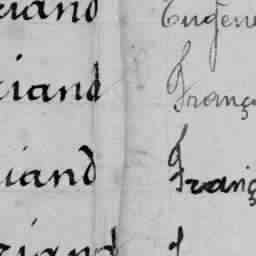 riand Eugène
riand Franç
riand Franç
riand